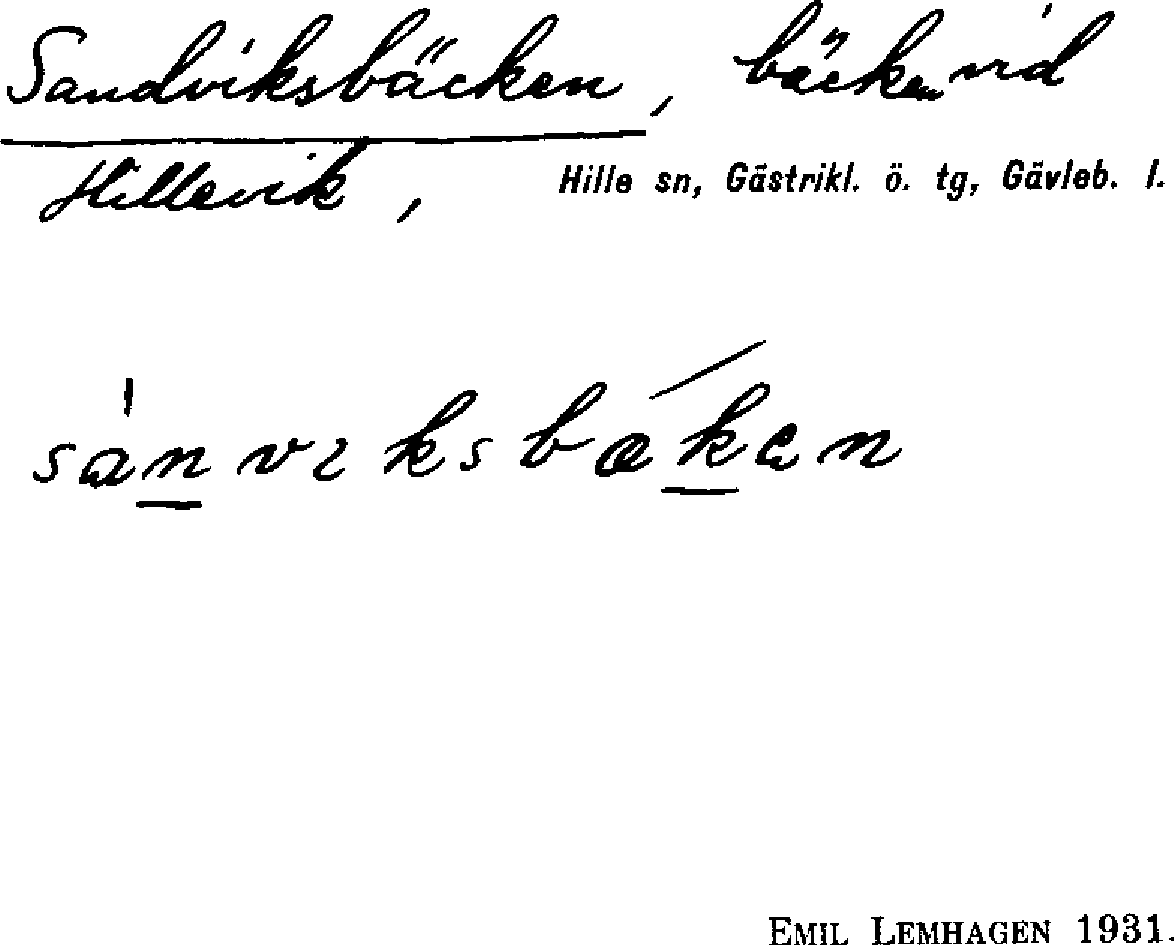 Sandviksbäcken, bäcken vid
Hillevik, Hille sn, Gästrikl. ö. tg, Gävleb. l.
sànviksbǽkən
EMIL LEMHAGEN 1931.